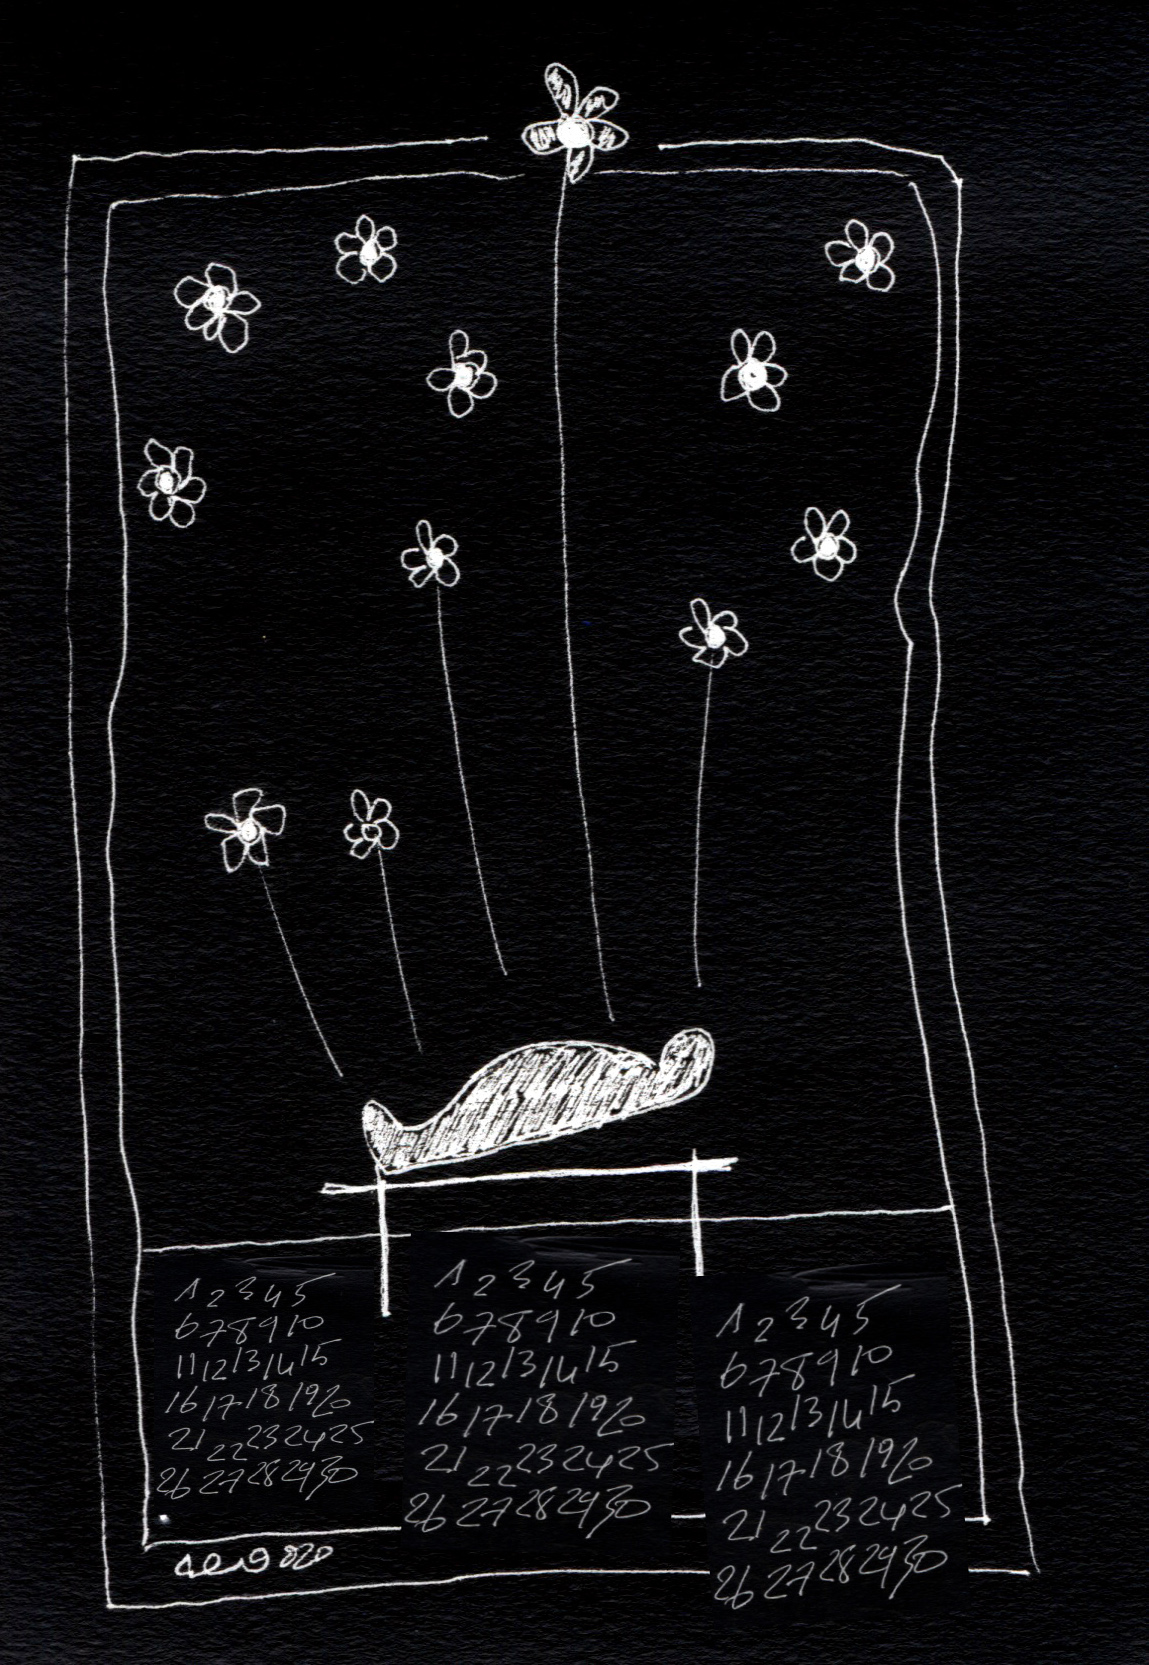 1 2 3 4 5
6 7 8 9 10
11 12 13 14 15
16 17 18 19 20
21 22 23 24 25
26 27 28 29 30
1 2 3 4 5
6 7 8 9 10
11 12 13 14 15
16 17 18 19 20
21 22 23 24 25
26 27 28 29 30
1 2 3 4 5
6 7 8 9 10
11 12 13 14 15
16 17 18 19 20
21 22 23 24 25
26 27 28 29 30